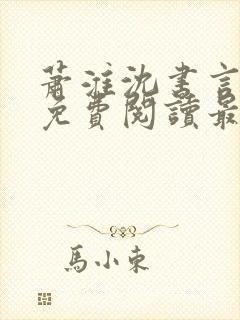 蕭淮沈書言
免費閱讀最
馬小東